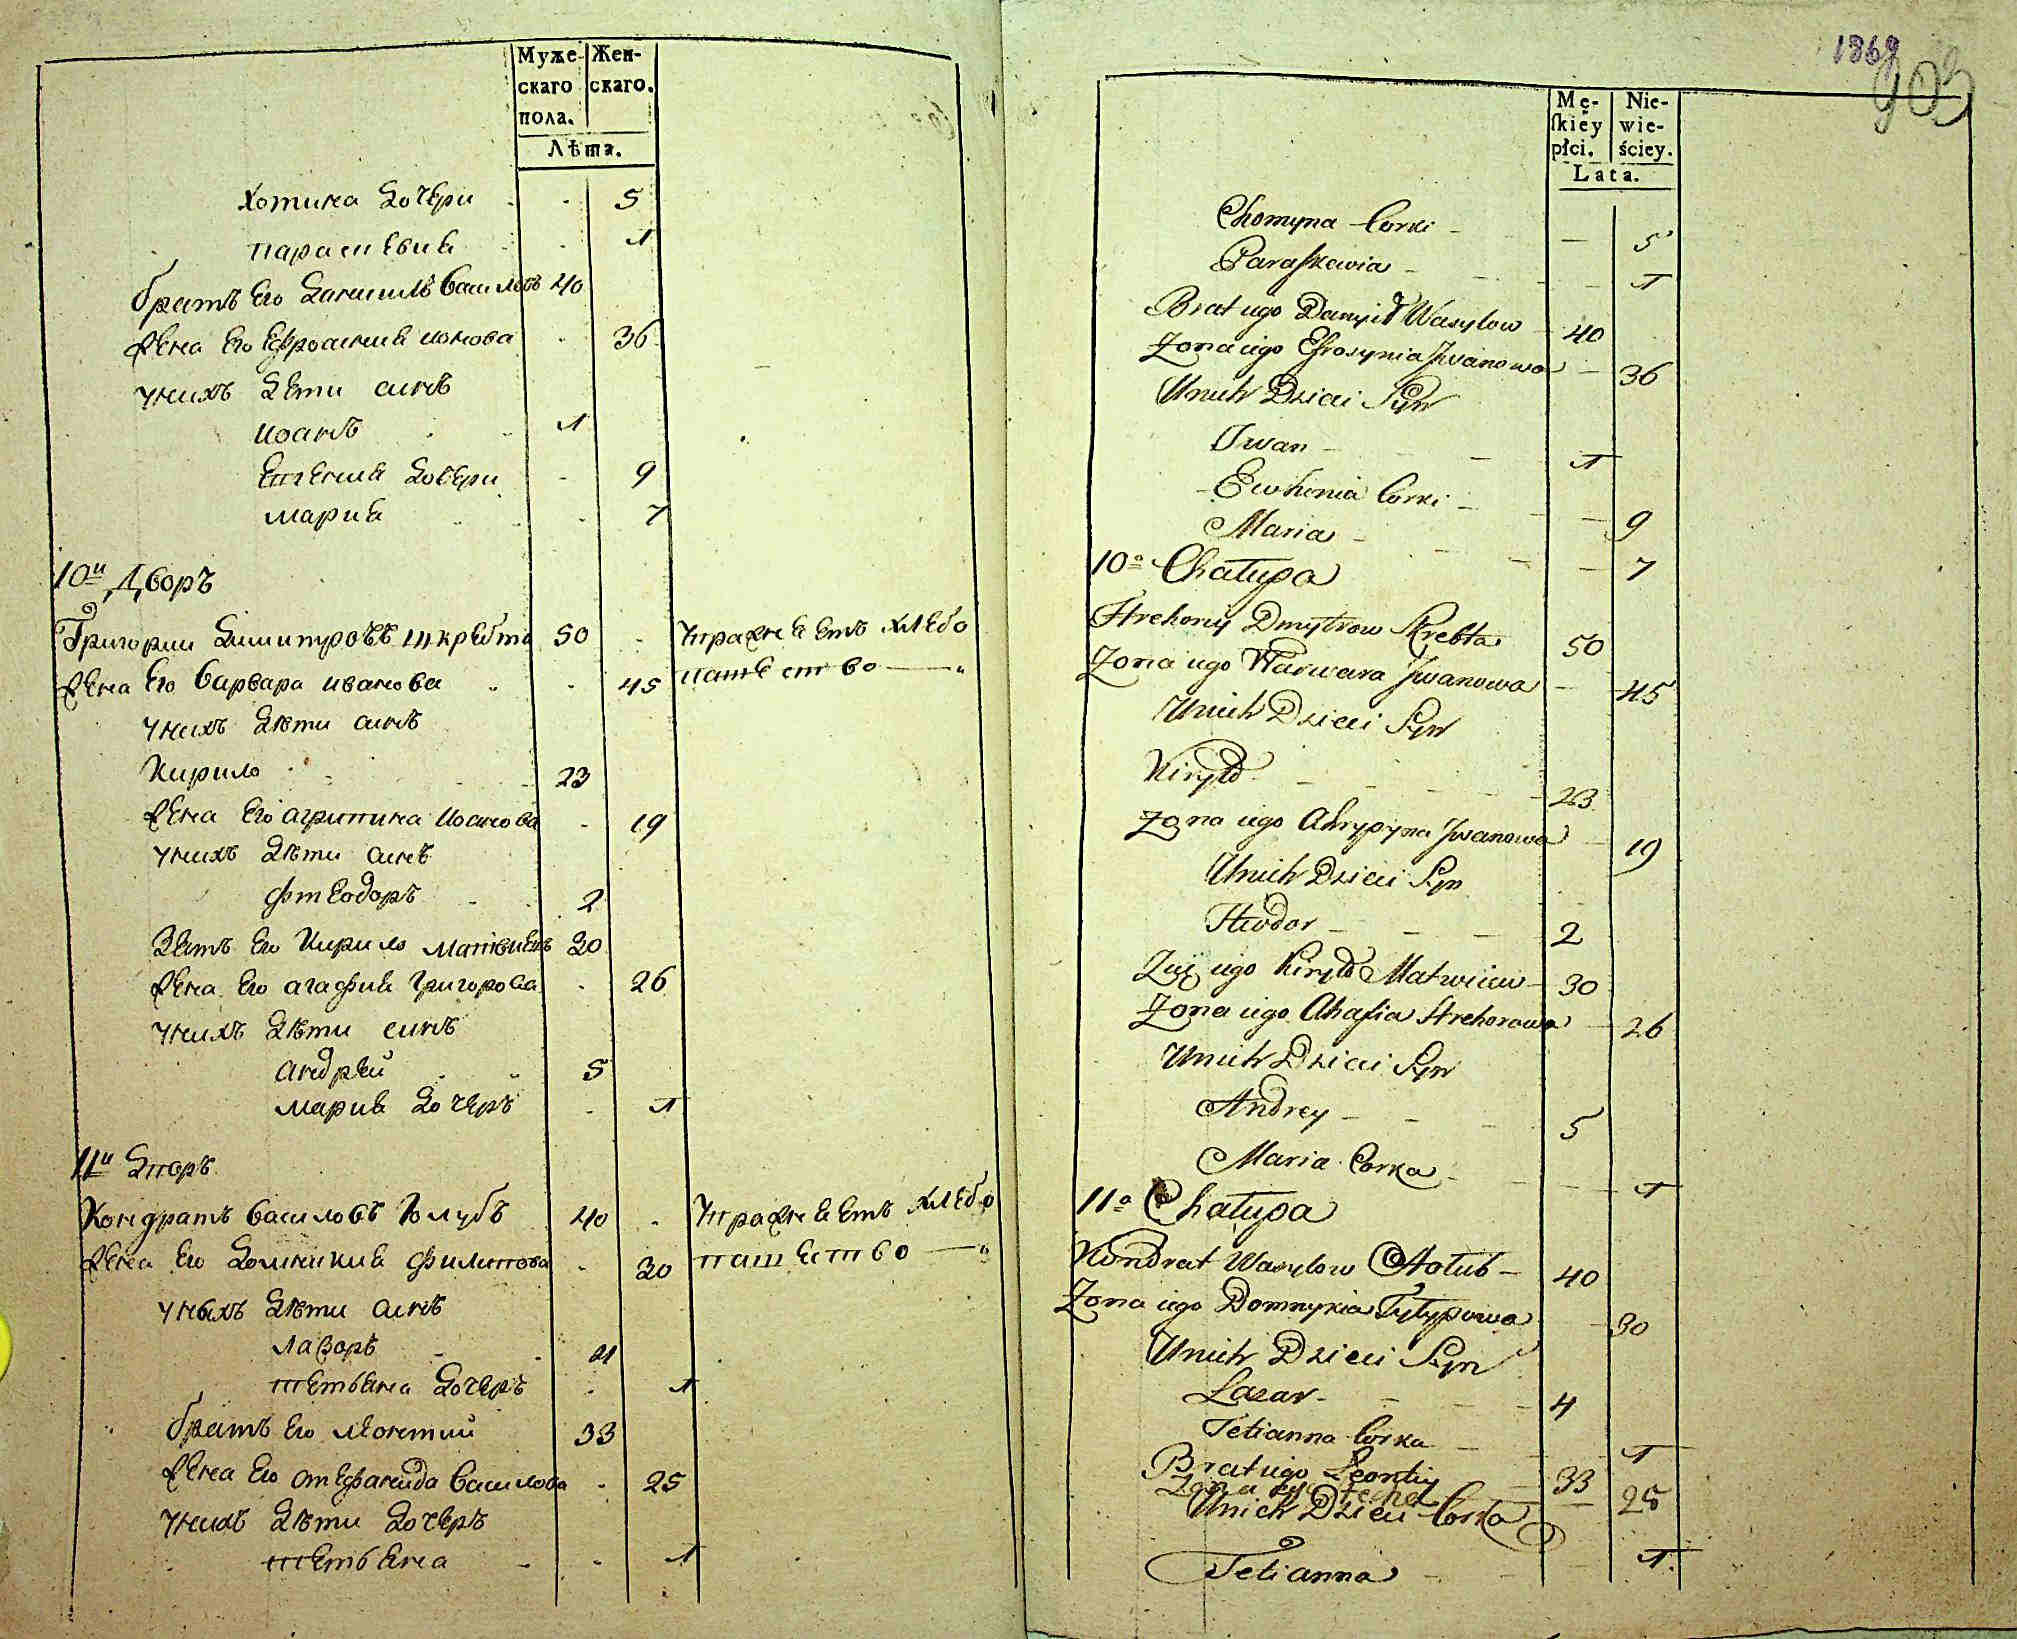 Муже- Жен-
скаго скаго.
пола.
Лѣта.
Хотина Дочери 5
параскевия 1
братъ Его Даниилъ Василовъ 40
Жена Его Ефросиния ионова 36
Унихъ Дети синъ
иоанъ 1
Евгения Дочери 9
мария 7
10й Дворъ
Григории Димитровъ шкребта 50 Упражняетъ хлебо
Жена Его варвара иванова 45 пашество
Унихъ Дѣти синъ
Кирило 23
Жена Его агрипина иоанова 19
Унихъ Дѣти синъ
фтеодоръ 2
Зять Его Кирило Матвиевъ 30
Жена Его агафия Григорова 26
Унихъ Дѣти синъ
андрей 5
мария Дочеръ 1
11й Дворъ
Кондратъ василовъ Голубъ 40 Упражняетъ хлебо
Жена Его Домникия филипова 30 пашество
Унихъ Дѣти синъ
лазоръ 4
тетьяна Дочеръ 1
братъ Его леонтий 33
Жена Его стефанида василова 25
Унихъ Дѣти Дочеръ
тетьяна 1
1869
903
Mę- Nie-
ſkiey wie-
płci. ściey.
Lata.
Chomyna Corki 5
Paraſkewia 1
Brat iego Danyił Wasylow 40
Zona iego Efrosynia Jwanowa 36
Unich Dzieci Syn
Jwan 1
Ewhenia Corki 9
Maria 7
10a Chałupa
Hrehory Dmytrow Skrebta 50
Zona iego Warwara Jwanowa 45
Unich Dzieci Syn
Kiryło 23
Zona iego Ahrypyna Jwanowa 19
Unich Dzieci Syn
Hwodor 2
Zięć iego Kiryło Matwiiew 30
Zona iego Ahafia Hrehorowa 26
Unich Dzieci Syn
Andrey 5
Maria Corka 1
11a Chałupa
Kondrat Wasylow Hołub 40
Zona iego Domnykia Fylypowa 30
Unich Dzieci Syn
Lazar 4
Tetianna Corka 1
Brat iego Leontiy 33
Zona iego 25
Unich Dzieci Corka
Tetianna 1